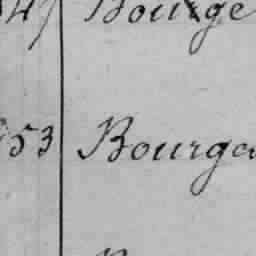 47 Bourge
53 Bourga